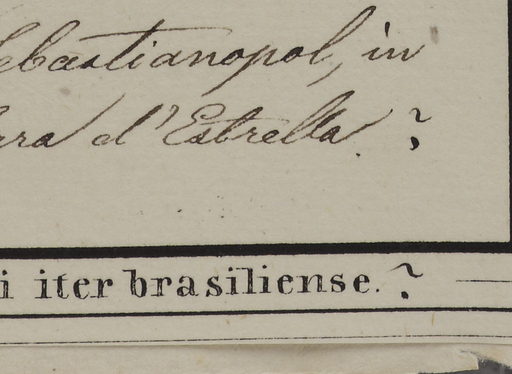 ebastianopol, in
ra d'Estrella. ?
i iter brasiliense. ?